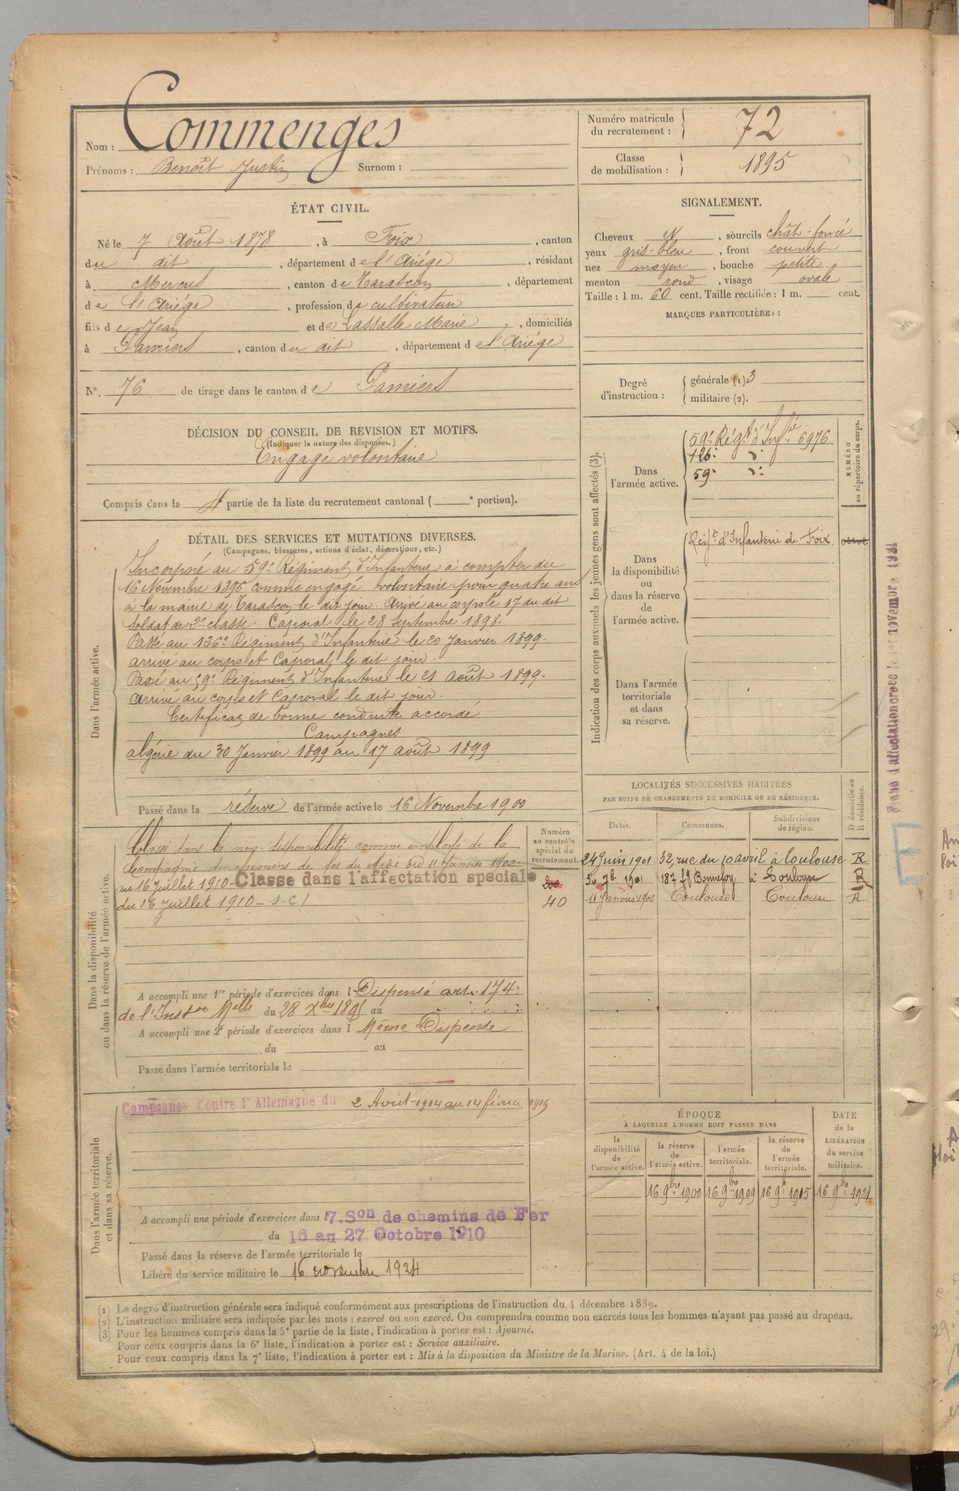 Nom : Commenges
Prénoms : Benoît Justin Surnom :
Numéro matricule du recrutement : 72
Classe de mobilisation : 1895
ÉTAT CIVIL.
Né le 7 Août 1878, à Foix, canton
du dit, département de l'Ariège, résidant
à Mercus, canton de Tarascon, département
de l'Ariège, profession de cultivateur
fils de Jean et de Lassalle Marie, domiciliés
à Pamiers, canton du dit, département de l'Ariège
N° 76 de tirage dans le canton de Pamiers
SIGNALEMENT.
Cheveux N, sourcils chât-foncé
yeux gris-bleu, front couvert
nez moyen, bouche petite
menton rond, visage ovale
Taille : 1 m. 60 cent. Taille rectifiée : 1 m. cent.
MARQUES PARTICULIÈRES :
Degré d'instruction : générale (1) 3
militaire (2).
DÉCISION DU CONSEIL DE REVISION ET MOTIFS.
(Indiquer la nature des dispenses.)
Engagé volontaire
Compris dans la 4e partie de la liste du recrutement cantonal ( e portion).
DÉTAIL DES SERVICES ET MUTATIONS DIVERSES.
(Campagnes, blessures, actions d'éclat, décorations, etc.)
Dans l'armée active.
Incorporé au 59e Régiment d'Infanterie à compter du
16 Novembre 1896 comme engagé volontaire pour quatre ans
à la mairie de Tarascon le dit jour. Arrivé au corps le 17 du dit
Soldat de 2e classe. Caporal le 28 Septembre 1898.
Passé au 126e Régiment d'Infanterie le 20 Janvier 1899.
arrivé au corps et Caporal le dit jour.
Passé au 59e Régiment d'Infanterie le 21 Août 1899.
Arrivé au corps et Caporal le dit jour.
Certificat de bonne conduite accordé
Campagnes
Algérie du 30 Janvier 1899 au 17 août 1899
Passé dans la réserve de l'armée active le 16 Novembre 1900
Indication des corps auxquels les jeunes gens sont affectés (3).
NUMÉRO au répertoire du corps.
Dans l'armée active.
59e Régt d'Infie 6976
126e d°
59e d°
Dans la disponibilité ou dans la réserve de l'armée active.
Régt d'Infanterie de Foix
Dans l'armée territoriale et dans sa réserve.
Plan d'affectation croté le 1er novembre 1921
Dans la disponibilité ou dans la réserve de l'armée active.
Numéro au contrôle spécial du recrutement.
Classé dans la non-disponibilité comme employé de la
Compagnie des chemins de fer du Midi du 11 Janvier 1902
au 16 Juillet 1910 - Classé dans l'affectation spéciale
du 16 Juillet 1910 - S.C.
40
A accompli une 1re période d'exercices dans l Dispensé art. 174
de l'Inston Melle du 28 Xbre 1895 au
A accompli une 2e période d'exercices dans l Même Dispense
du au
Passé dans l'armée territoriale le
LOCALITÉS SUCCESSIVES HABITÉES
PAR SUITE DE CHANGEMENTS DE DOMICILE OU DE RÉSIDENCE.
Dates. Communes. Subdivisions de région. D domicile ou R résidence.
24 Juin 1901 32, rue du 10 avril à Toulouse R
30 7bre 1901 187 fg Bonnefoy à Toulouse R
11 Janvier 1902 Toulouse Toulouse R
Dans l'armée territoriale et dans sa réserve.
Campagnes Contre l'Allemagne du 2 Août 1914 au 14 février 1919
A accompli une période d'exercices dans l 7. Son de chemins de Fer
du 18 au 27 Octobre 1910
Passé dans la réserve de l'armée territoriale le
Libéré du service militaire le 16 novembre 1924
ÉPOQUE
À LAQUELLE L'HOMME DOIT PASSER DANS
la disponibilité de l'armée active. la réserve de l'armée active. l'armée territoriale. la réserve de l'armée territoriale.
DATE de la LIBÉRATION du service militaire.
16 9bre 1900 16 9bre 1909 16 9bre 1915 16 9bre 1921
(1) Le degré d'instruction générale sera indiqué conformément aux prescriptions de l'instruction du 4 décembre 1889.
(2) L'instruction militaire sera indiquée par les mots : exercé ou non exercé. On comprendra comme non exercés tous les hommes n'ayant pas passé au drapeau.
(3) Pour les hommes compris dans la 5e partie de la liste, l'indication à porter est : Ajourné.
Pour ceux compris dans la 6e liste, l'indication à porter est : Service auxiliaire.
Pour ceux compris dans la 7e liste, l'indication à porter est : Mis à la disposition du Ministre de la Marine. (Art. 4 de la loi.)